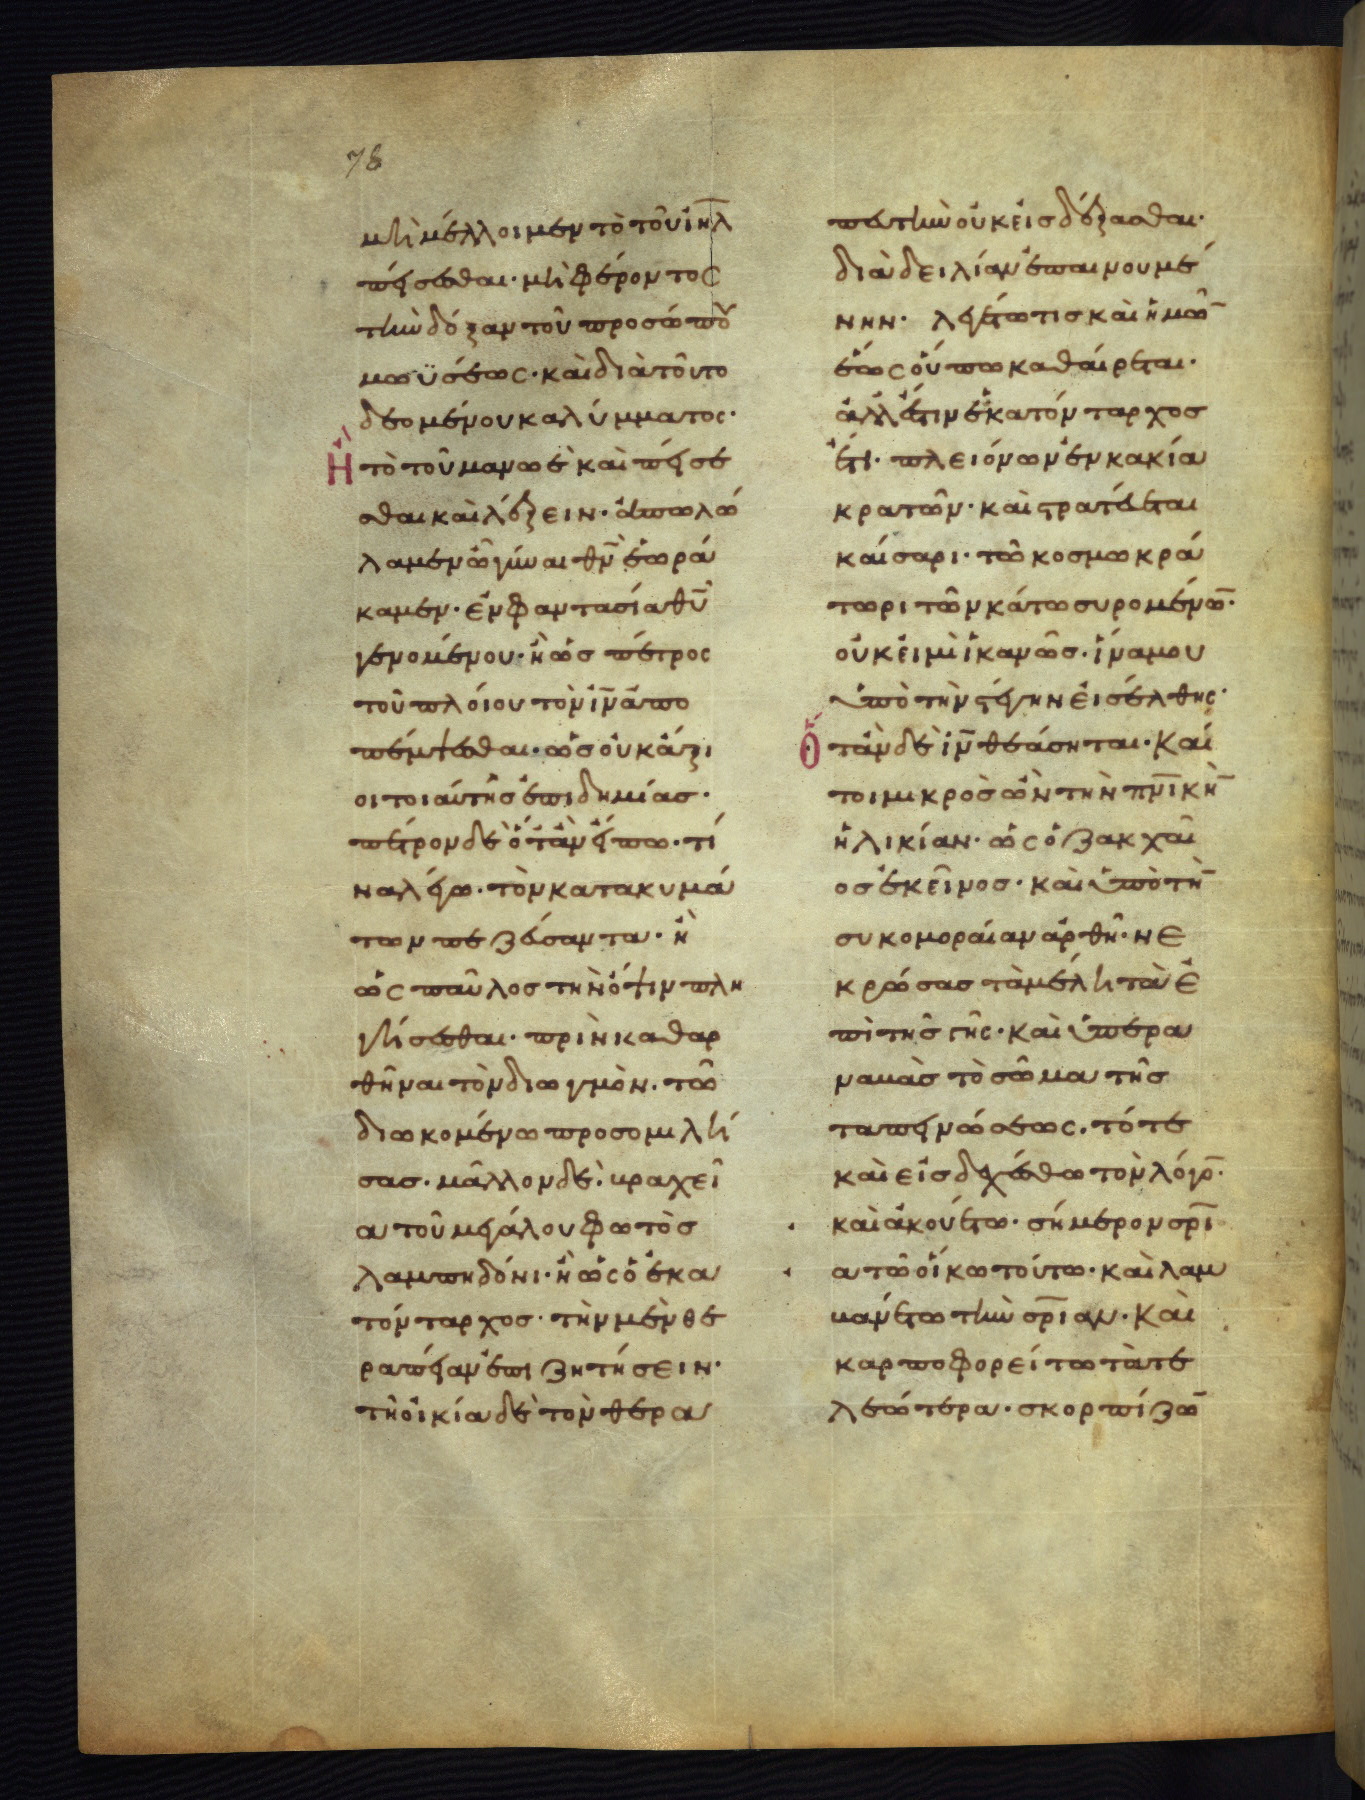 78
μὴ μέλλοιμεν τὸ τοῦ ἰη̅λ
πείσεσθαι· μὴ φέροντος
τὴν δόξαν τοῦ προσώπου
μωϋσέως· καὶ διὰ τοῦτο
δεομένου καλύμματος·
Ἢ τὸ τοῦ μανωὲ καὶ πείσε
σθαι καὶ λέξειν· ἀπολώ
λαμεν ὦ γύναι θν̅ ἑωρά
καμεν· ἐν φαντασία θυ̅
γενομένου· ἢ ὡς πέτρος
τοῦ πλοίου τὸν ἰν̅ ἀπο
πέμψεσθαι· ὡς οὐκ ἄξι
οι τοιαύτης ἐπιδημίας·
πέτρον δὲ ὅταν εἴπω· τί
να λέγω· τὸν κατὰ κυμά
των πεζεύσαντα· ἢ
ὡς παῦλος τὴν ὄψιν πλη
γήσεσθαι· πρὶν καθαρ
θῆναι τὸν διωγμὸν· τῶ
διωκομένω προσομιλή
σας· μᾶλλον δὲ· βραχεῖ
α τοῦ μεγάλου φωτὸς
λαμπηδόνι· ἢ ὡς ὁ ἑκα
τόνταρχος· τὴν μὲν θε
ραπείαν ἐπιζητήσειν·
τῆ οἰκία δὲ τὸν θερα
πευτὴν οὐκ εἰσδέξασθαι·
διὰ δειλίαν ἐπαινουμέ
νην· λεγέτω τις καὶ ἡμῶ̅
ἕως οὔπω καθαίρεται·
ἀλλ' ἔστιν ἑκατόνταρχος
ἔτι· πλειόνων ἐν κακία
κρατῶν· καὶ στρατεύεται
καίσαρι· τῶ κοσμοκρά
τωρι τῶν κάτω συρομένω̅·
οὐκ εἰμὶ ἱκανῶς· ἵνα μου
ὑπὸ τὴν στέγην εἰσέλθης·
Ὅταν δὲ ἰν̅ θεάσηται· Καί
τοι μικρὸς ὢν τὴν πν̅ικὴ̅
ἡλικίαν· ὡς ὁ ζακχαῖ
ος ἐκεῖνος· καὶ ὑπὸ τὴ̅
συκομοραίαν ἀρθῆ· νε
κρώσας τὰ μέλη τὰ ἐ
πὶ τῆς γῆς· καὶ ὑπερα
ναβὰς τὸ σῶμα τῆς
ταπεινώσεως· τότε
καὶ εἰσδεχέσθω τὸν λόγο̅·
καὶ ἀκουέτω· σήμερον σρ̅ι
α τῶ οἴκω τούτω· καὶ λαμ
βανέτω τὴν σρ̅ιαν· Καὶ
καρποφορείτω τὰ τε
λεώτερα· σκορπίζω̅